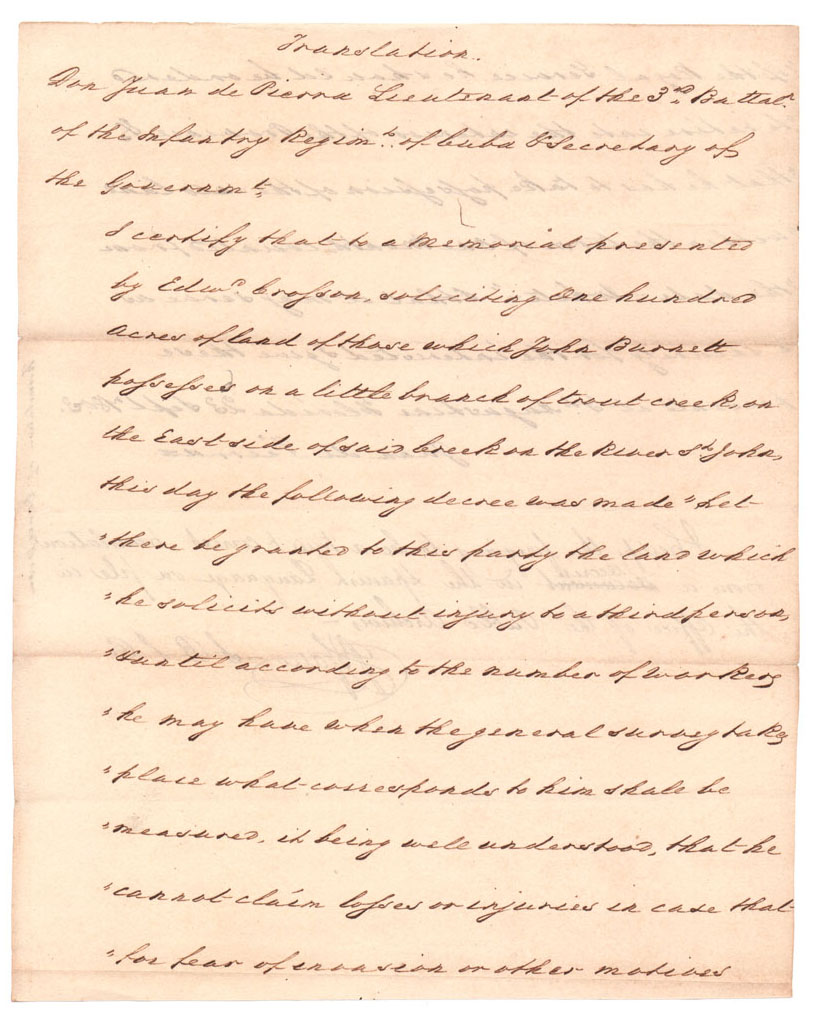 Translation.
Don Juan de Pierra Lieutenant of the 3rd. Battaln.
of the Infantry Regimt. of Cuba & Secretary of
the Governmt.
I certify that to a Memorial presented
by Edwd Crosson, soliciting One hundred
acres of land of those which John Burnett
possesses on a little branch of trout creek, on
the East side of said Creek on the River St. John,
this day the following decree was made "Let
"there be granted to this party the land which
"he solicits without injury to a third person,
"& until according to the number of workers
"he may have when the general survey takes
"place what corresponds to him shall be
"measured, it being well understood, that he
"cannot claim losses or injuries in case that
"for fear of invasion or other motives